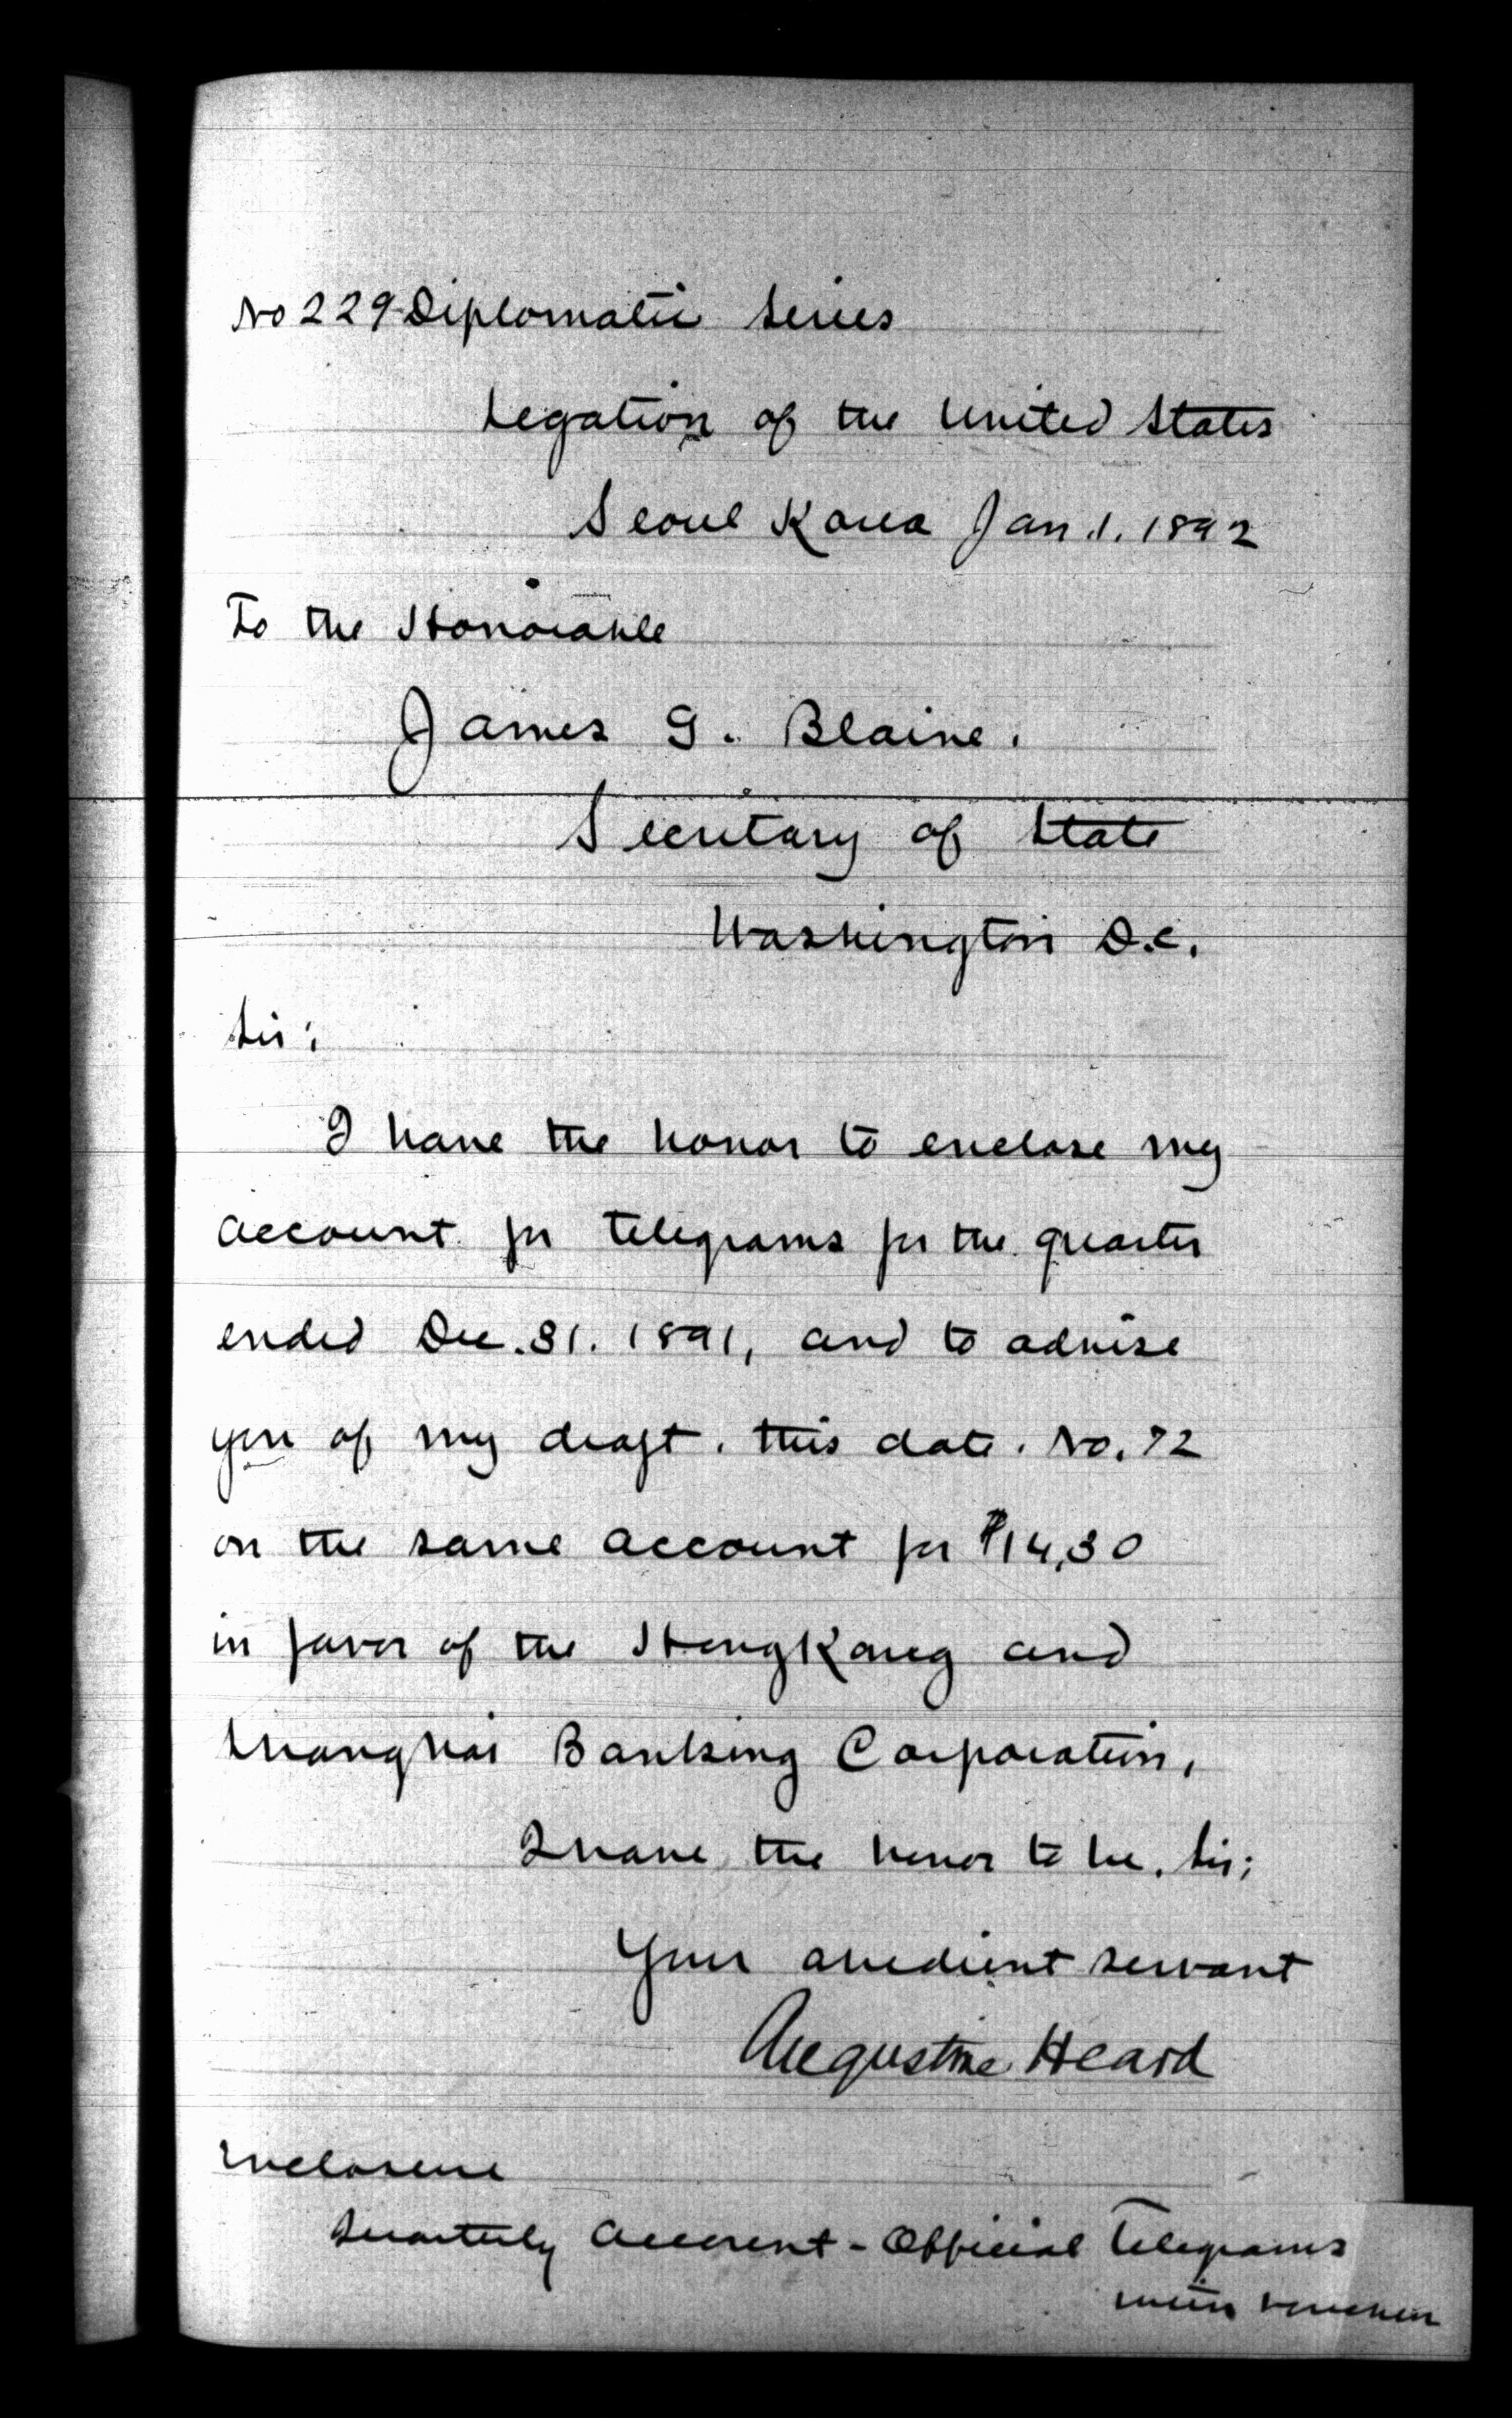 No 229 Diplomatic Series
Legation of the United States
Seoul Korea Jan. 1. 1892
To the Honorable
James G. Blaine.
Secretary of State
Washington D.C.
Sir:
I have the honor to enclose my
account for telegrams for the quarter
ended Dec. 31. 1891, and to advise
you of my draft, this date, No. 72
on the same account for $14.30
in favor of the HongKong and
Shanghai Banking Corporation,
I have the honor to be, Sir;
Your obedient servant
Augustine Heard
Enclosure
Quarterly Account - Official Telegrams
with vouchers